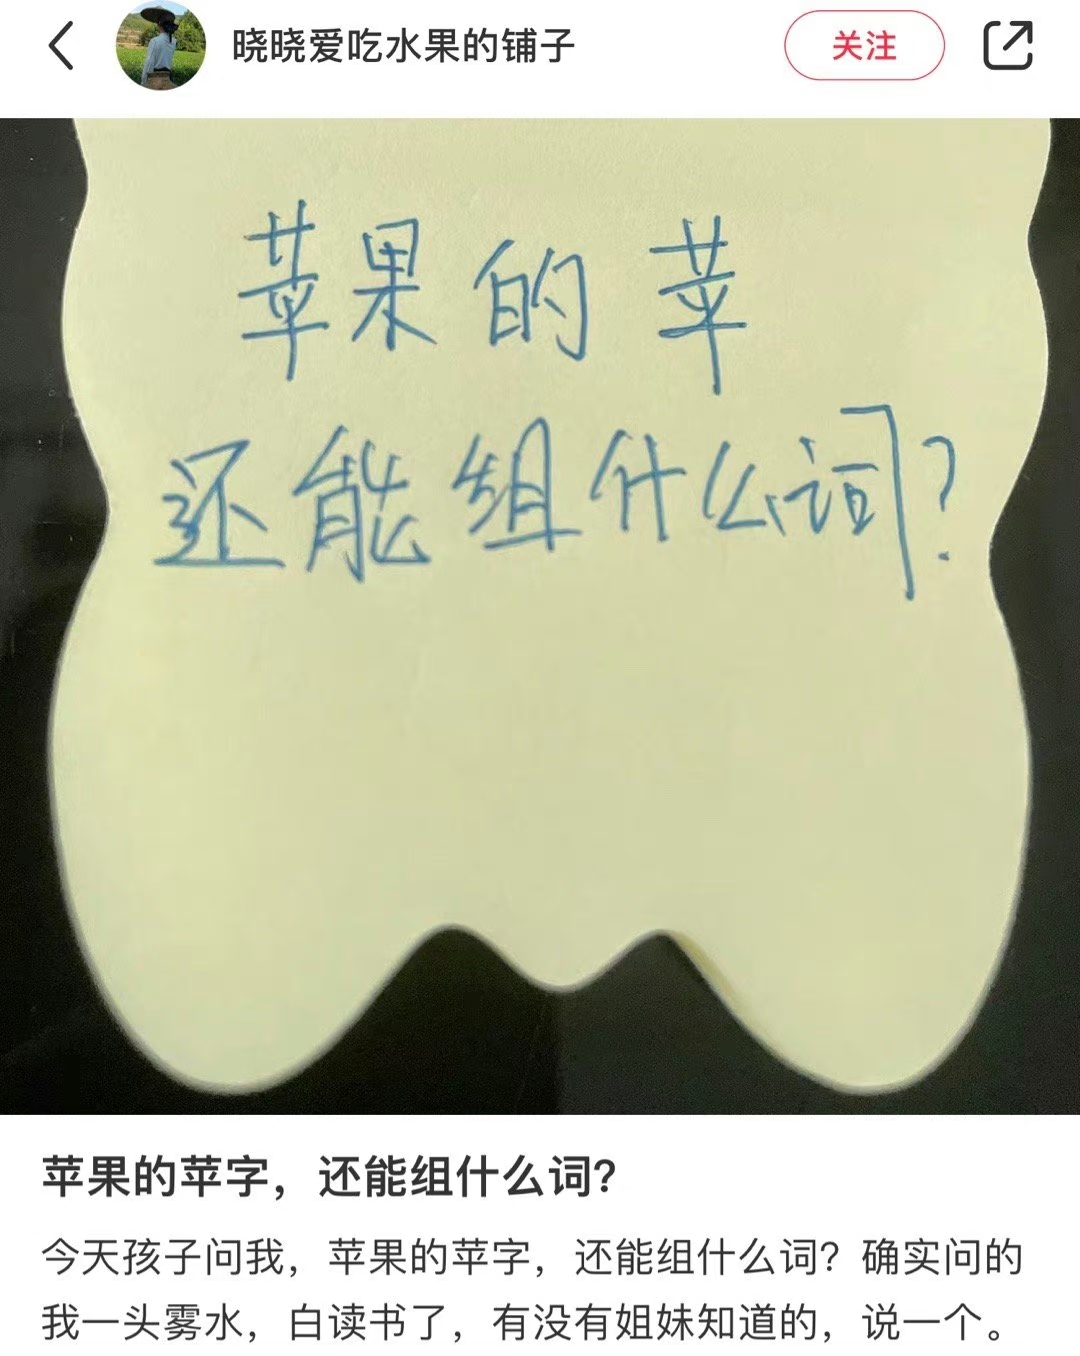 晓晓爱吃水果的铺子
关注
苹果的苹
还能组什么词?
苹果的苹字，还能组什么词?
今天孩子问我，苹果的苹字，还能组什么词？确实问的
我一头雾水，白读书了，有没有姐妹知道的，说一个。